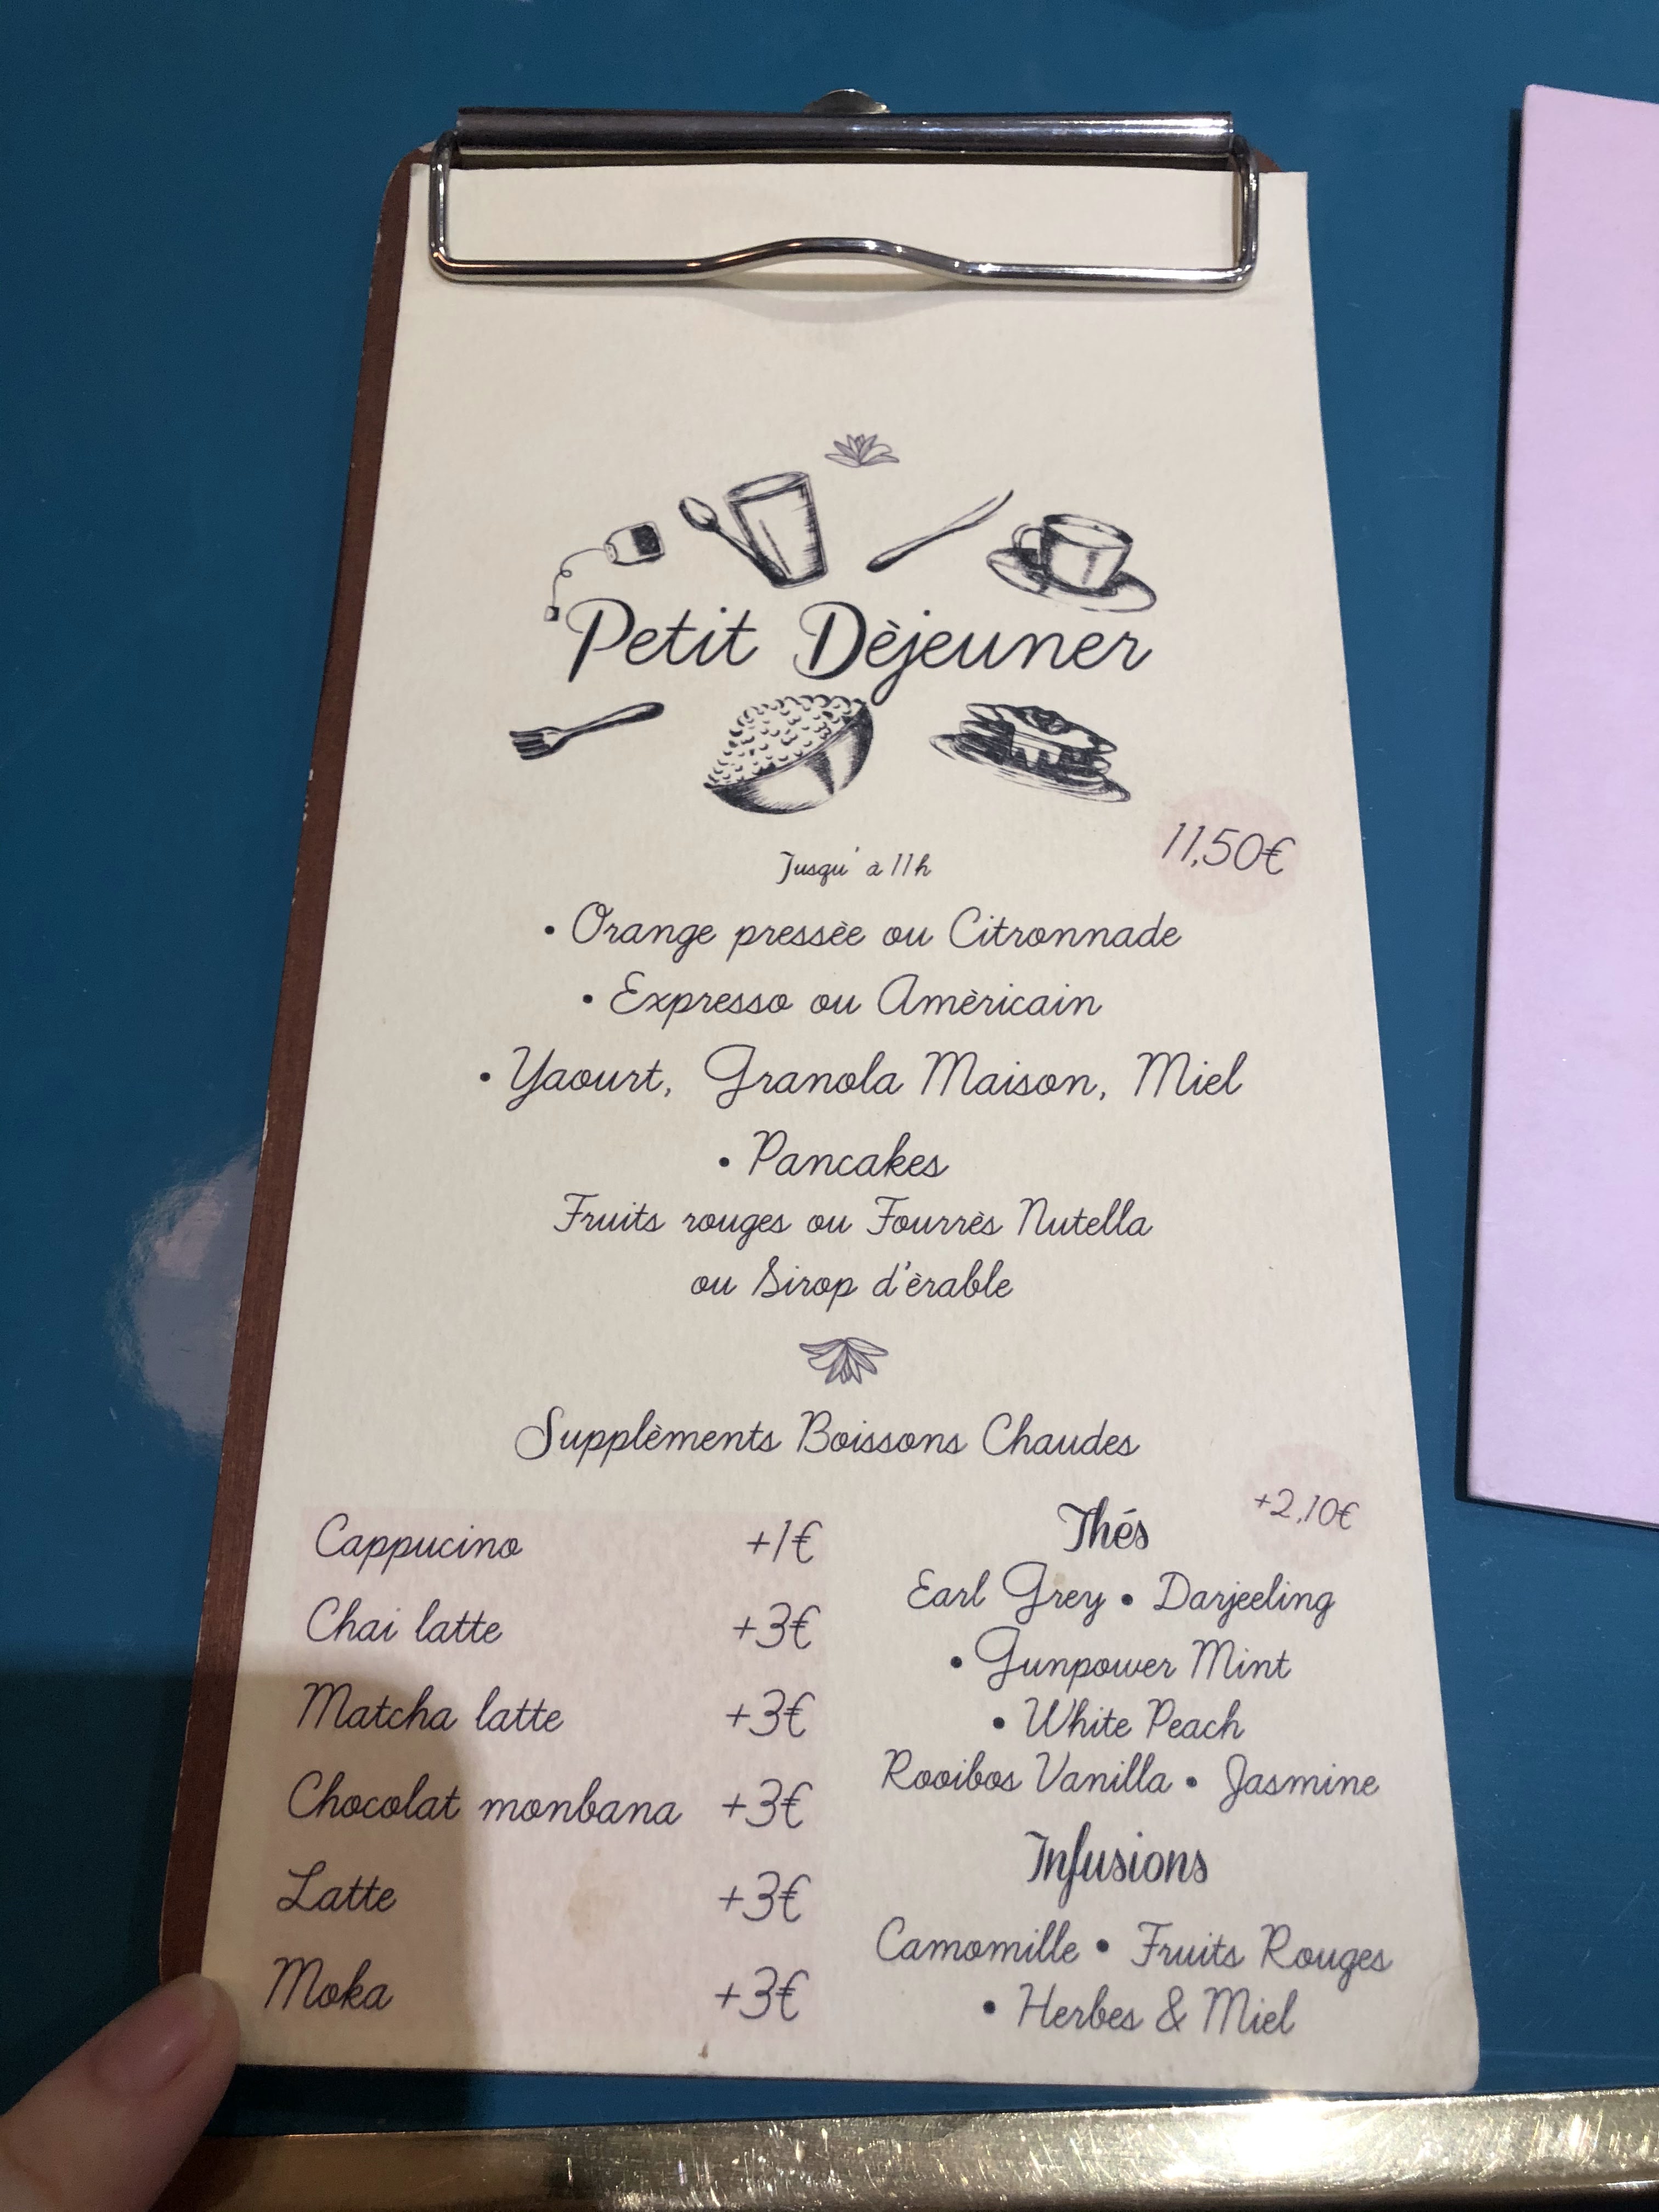 Petit Dèjeuner
11,50€
Jusqu' à 11h
• Orange pressèe ou Citronnade
• Expresso ou Amèricain
• Yaourt, Granola Maison, Miel
• Pancakes
Fruits rouges ou Fourrès Nutella
ou Sirop d'èrable
Supplèments Boissons Chaudes
Cappucino +1€
Chai latte +3€
Matcha latte +3€
Chocolat monbana +3€
Latte +3€
Moka +3€
Thés +2,10€
Earl Grey • Darjeeling
• Gunpower Mint
• White Peach
Rooibos Vanilla • Jasmine
Infusions
Camomille • Fruits Rouges
• Herbes & Miel